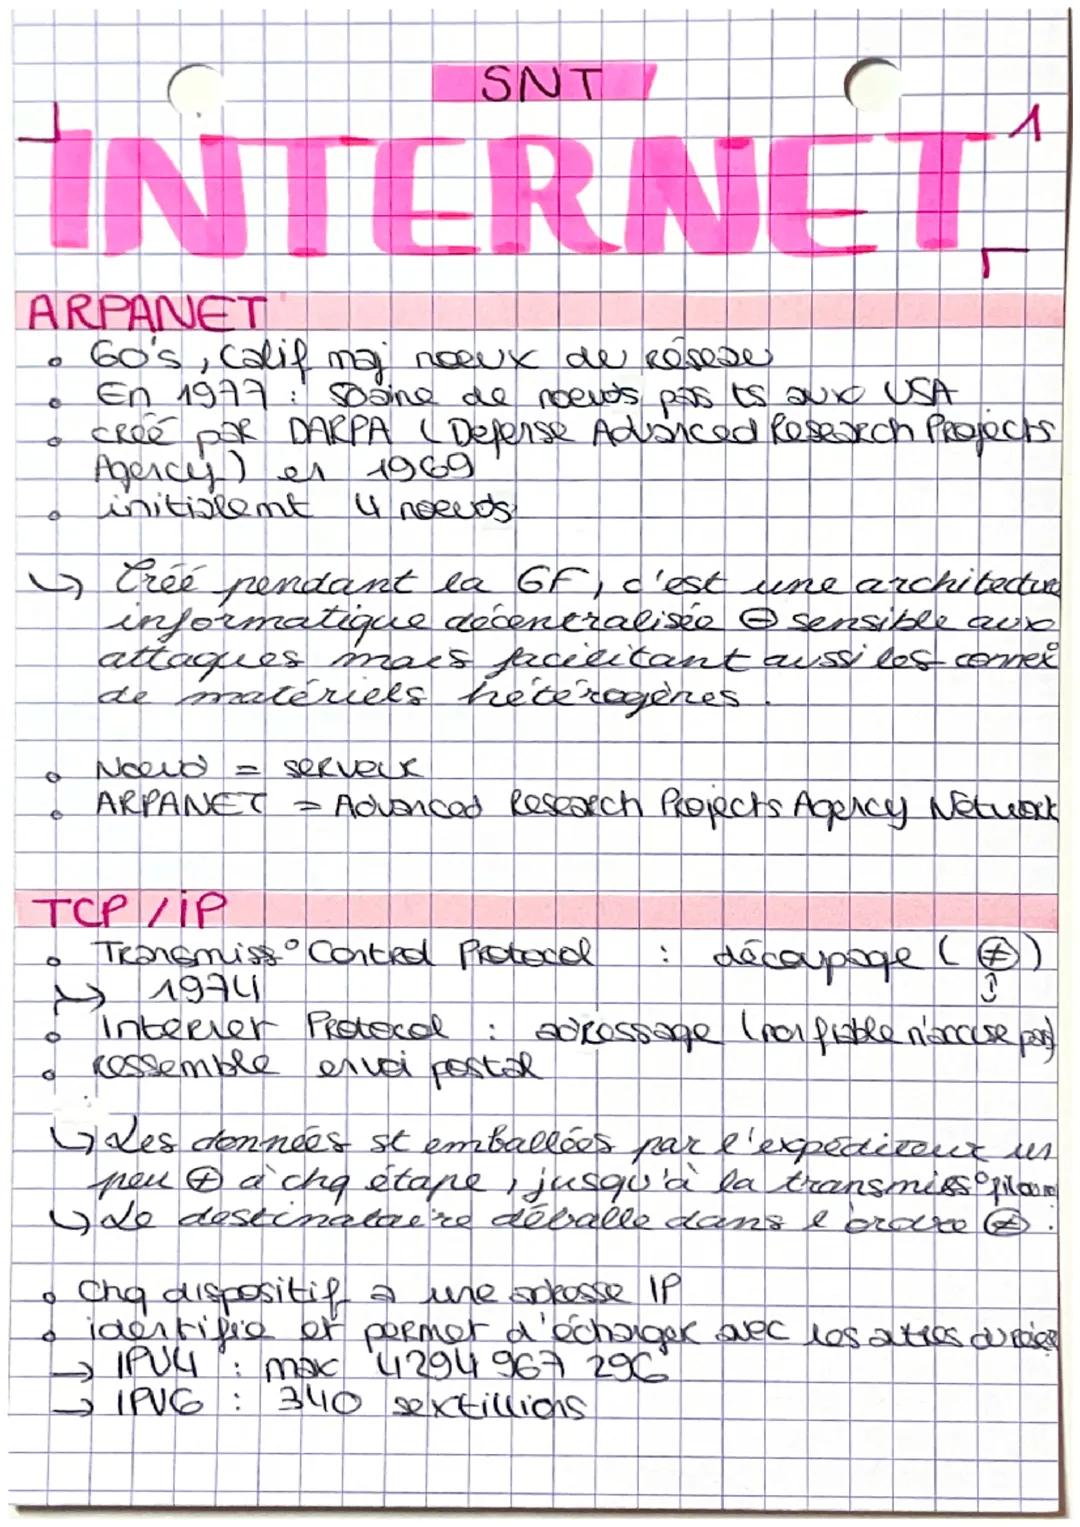 SNT
INTERNET
1
ARPANET
• 60's, Calif maj noeux de réseau
• En 1977 : 50aine de noeuds pas ts aux USA
• créé par DARPA (Defense Advanced Research Projects
Agency) en 1969
• initialemt 4 noeuds
↳ Créé pendant la GF, c'est une architecture
informatique décentralisée ⊖ sensible aux
attaques mais facilitant aussi les connex°
de matériels hétérogènes.
• Noeud = serveur
• ARPANET = Advanced Research Projects Agency Network
TCP / iP
• Transmiss° Control Protocol : découpage (≠)
↳ 1974
• Internet Protocol : adressage (non fiable n'accuse pas)
• ressemble envoi postal
↳ Les données st emballées par l'expéditeur un
peu ⊕ à chq étape, jusqu'à la transmiss°
↳ Le destinataire déballe dans l'ordre ≠.
• Chq dispositif a une adresse IP
• identifie et permet d'échanger avec les autres du
→ IPV4 : max 4 294 967 296
→ IPV6 : 340 sextillions